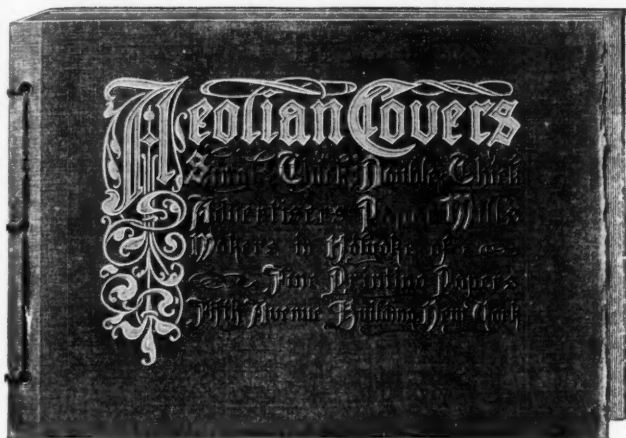 Aeolian Covers
Single Thick Double Thick
Advertisers Paper Mills
Makers in Holyoke of
Fine Printing Papers
Fifth Avenue Building New York